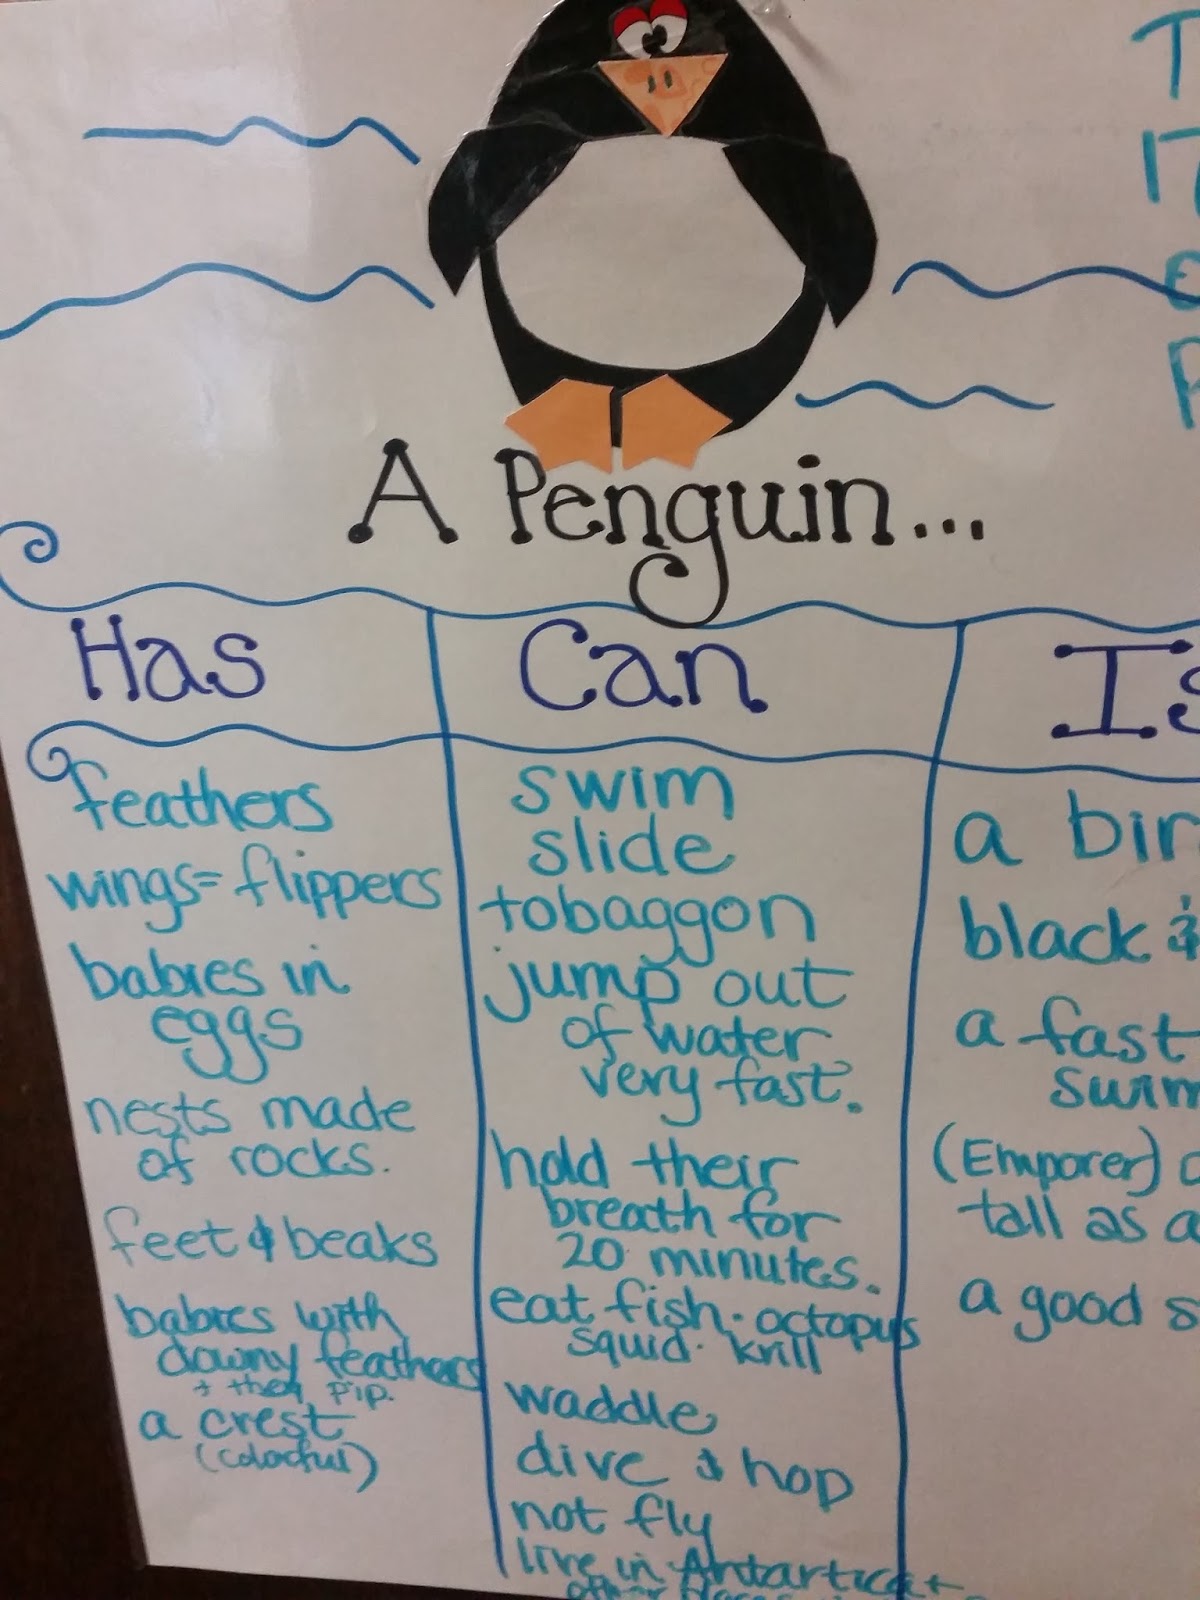 A Penguin...
Has
feathers
wings=flippers
babies in
eggs
nests made
of rocks.
feet & beaks
babies with
downy feathers
+ they pip.
a crest
(colorful)
Can
swim
slide
tobaggon
jump out
of water
very fast.
hold their
breath for
20 minutes.
eat fish · octopus
squid · krill
waddle
dive & hop
not fly
live in Antartica +
other places
Is
a bir
black &
a fast
swim
(Emporer)
tall as a
a good s